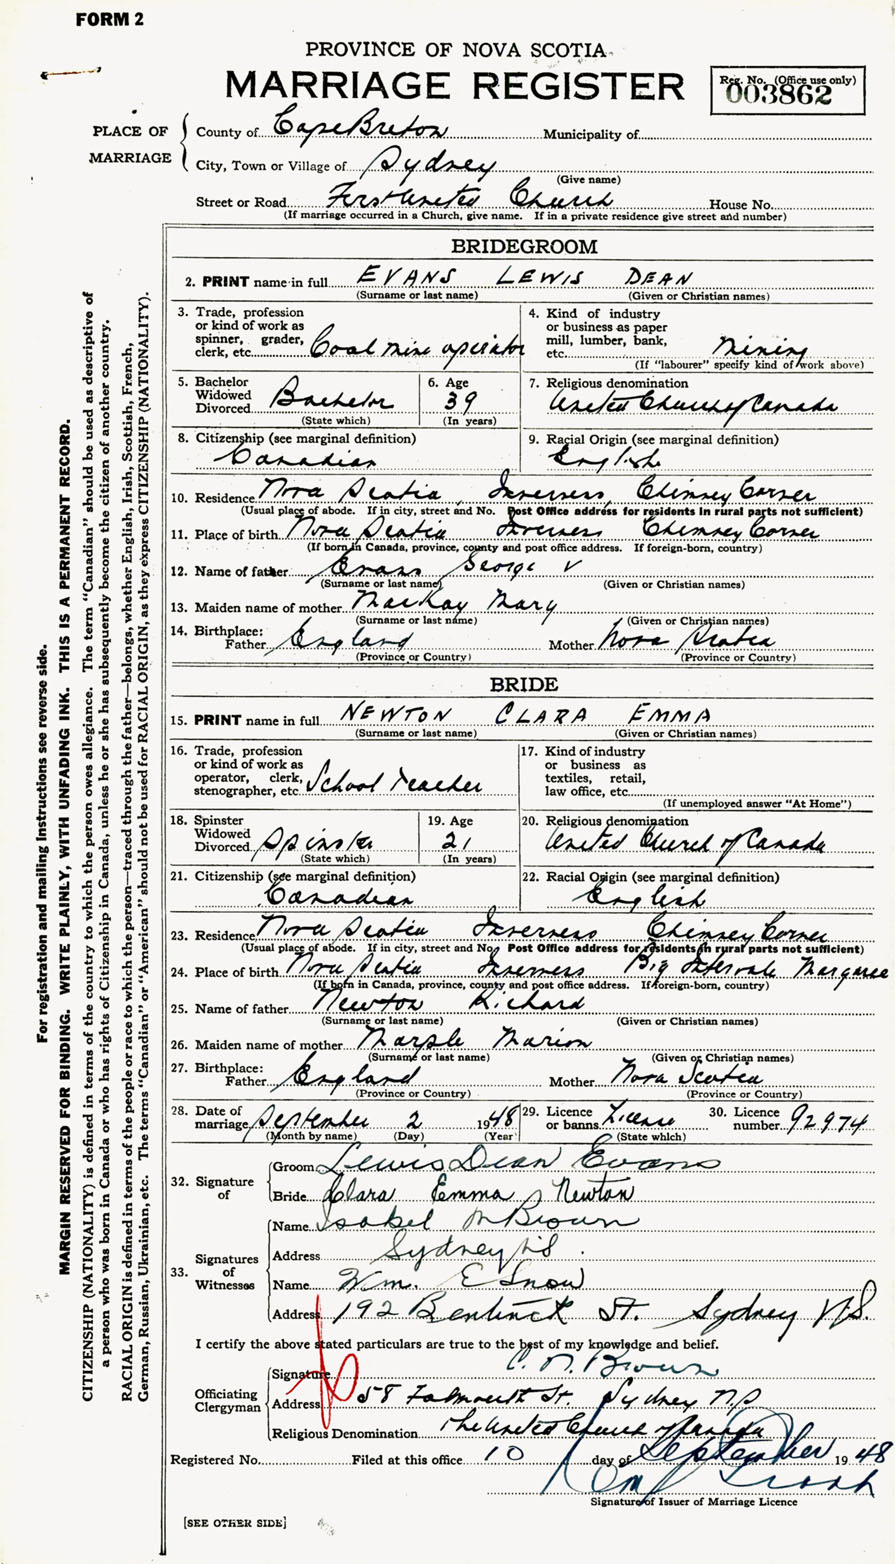 FORM 2
PROVINCE OF NOVA SCOTIA
MARRIAGE REGISTER
Reg. No. (Office use only)
003862
PLACE OF MARRIAGE
County of Cape Breton Municipality of
City, Town or Village of Sydney
(Give name)
Street or Road First United Church House No.
(If marriage occurred in a Church, give name. If in a private residence give street and number)
BRIDEGROOM
2. PRINT name in full EVANS LEWIS DEAN
(Surname or last name) (Given or Christian names)
3. Trade, profession
or kind of work as
spinner, grader,
clerk, etc. Coal mine operator
4. Kind of industry
or business as paper
mill, lumber, bank,
etc. Mining
(If "labourer" specify kind of work above)
5. Bachelor
Widowed
Divorced Bachelor
(State which)
6. Age
39
(In years)
7. Religious denomination
United Church of Canada
8. Citizenship (see marginal definition)
Canadian
9. Racial Origin (see marginal definition)
English
10. Residence Nova Scotia, Inverness, Chimney Corner
(Usual place of abode. If in city, street and No. Post Office address for residents in rural parts not sufficient)
11. Place of birth Nova Scotia Inverness Chimney Corner
(If born in Canada, province, county and post office address. If foreign-born, country)
12. Name of father Evans George V
(Surname or last name) (Given or Christian names)
13. Maiden name of mother MacKay Mary
(Surname or last name) (Given or Christian names)
14. Birthplace:
Father England Mother Nova Scotia
(Province or Country) (Province or Country)
BRIDE
15. PRINT name in full NEWTON CLARA EMMA
(Surname or last name) (Given or Christian names)
16. Trade, profession
or kind of work as
operator, clerk,
stenographer, etc. School Teacher
17. Kind of industry
or business as
textiles, retail,
law office, etc.
(If unemployed answer "At Home")
18. Spinster
Widowed
Divorced Spinster
(State which)
19. Age
21
(In years)
20. Religious denomination
United Church of Canada
21. Citizenship (see marginal definition)
Canadian
22. Racial Origin (see marginal definition)
English
23. Residence Nova Scotia Inverness Chimney Corner
(Usual place of abode. If in city, street and No. Post Office address for residents in rural parts not sufficient)
24. Place of birth Nova Scotia Inverness Big Intervale Margaree
(If born in Canada, province, county and post office address. If foreign-born, country)
25. Name of father Newton Richard
(Surname or last name) (Given or Christian names)
26. Maiden name of mother Marple Marion
(Surname or last name) (Given or Christian names)
27. Birthplace:
Father England Mother Nova Scotia
(Province or Country) (Province or Country)
28. Date of
marriage September 2 1948
(Month by name) (Day) (Year)
29. Licence
or banns License
(State which)
30. Licence
number 92974
32. Signature of
Groom Lewis Dean Evans
Bride Clara Emma Newton
33. Signatures of Witnesses
Name Isabel M Brown
Address Sydney N.S.
Name Wm. E Snow
Address 192 Bentinck St. Sydney N.S.
I certify the above stated particulars are true to the best of my knowledge and belief.
Officiating Clergyman
Signature C. M. Brown
Address 58 Falmouth St. Sydney N.S
Religious Denomination The United Church of Canada
Registered No. Filed at this office 10 day of September 1948
Signature of Issuer of Marriage Licence
[SEE OTHER SIDE]
For registration and mailing instructions see reverse side.
MARGIN RESERVED FOR BINDING. WRITE PLAINLY, WITH UNFADING INK. THIS IS A PERMANENT RECORD.
CITIZENSHIP (NATIONALITY) is defined in terms of the country to which the person owes allegiance. The term "Canadian" should be used as descriptive of
a person who was born in Canada or who has rights of Citizenship in Canada, unless he or she has subsequently become the citizen of another country.
RACIAL ORIGIN is defined in terms of the people or race to which the person—traced through the father—belongs, whether English, Irish, Scottish, French,
German, Russian, Ukrainian, etc. The terms "Canadian" or "American" should not be used for RACIAL ORIGIN, as they express CITIZENSHIP (NATIONALITY).